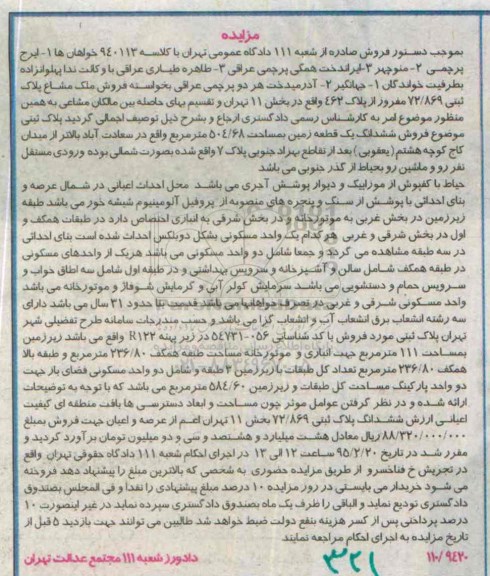 مزایده
بموجب دستور فروش صادره از شعبه 111 دادگاه عمومی تهران با کلاسه 940113 خواهان ها 1- ایرج
پرچمی 2- منوچهر 3- ایراندخت همگی پرچمی عراقی 3- طاهره طیاری عراقی با وکالت ندا پهلوانزاده
بطرفیت خواندگان 1- جهانگیر 2- آذرمیدخت هر دو پرچمی عراقی بخواسته فروش ملک مشاع پلاک
ثبتی 72/869 مفروز از پلاک 462 واقع در بخش 11 تهران و تقسیم بهای حاصله بین مالکان مشاعی به همین
منظور موضوع امر به کارشناس رسمی دادگستری ارجاع و بشرح ذیل توصیف اجمالی گردید پلاک ثبتی
موضوع فروش ششدانگ یک قطعه زمین بمساحت 504/68 مترمربع واقع در سعادت آباد بالاتر از میدان
کاج کوچه هشتم (یعقوبی) بعد از تقاطع بهراد جنوبی پلاک 7 واقع شده بصورت شمالی بوده ورودی مستقل
نفر رو و ماشین رو بحیاط از گذر جنوبی می باشد
حیاط با کفپوش از موزاییک و دیوار پوشش آجری می باشد محل احداث اعیانی در شمال عرصه و
بنای احداثی با پوشش از سنگ و پنجره های منصوبه از پروفیل آلومینیوم شیشه خور می باشد طبقه
زیرزمین در بخش غربی به موتورخانه و در بخش شرقی به انباری اختصاص دارد در طبقات همکف و
اول در بخش شرقی و غربی هر کدام یک واحد مسکونی بشکل دوبلکس احداث شده است بنای احداثی
در سه طبقه مشاهده می گردد و جمعا شامل دو واحد مسکونی می باشد هریک از واحدهای مسکونی
در طبقه همکف شامل سالن و آشپزخانه و سرویس بهداشتی و در طبقه اول شامل سه اطاق خواب و
سرویس حمام و دستشویی می باشد سرمایش کولر آبی و گرمایش شوفاژ و موتورخانه می باشد
واحد مسکونی شرقی و غربی در تصرف خواهانها می باشد قدمت بنا حدود 31 سال می باشد دارای
سه رشته انشعاب برق انشعاب آب و انشعاب گاز می باشد و حسب مندرجات سامانه طرح تفصیلی شهر
تهران پلاک ثبتی مورد فروش با کد شناسایی 056-54731 در زیر پهنه R122 واقع می باشد زیرزمین
بمساحت 111 مترمربع جهت انباری و موتورخانه مساحت طبقه همکف 236/80 مترمربع و طبقه بالا
همکف 236/80 مترمربع تعداد کل طبقات با زیرزمین 3 طبقه و شامل دو واحد مسکونی فضای باز جهت
دو واحد پارکینگ مساحت کل طبقات و زیرزمین 584/60 مترمربع می باشد که با توجه به توضیحات
ارائه شده و در نظر گرفتن عوامل موثر چون مساحت و ابعاد دسترسی ها بافت منطقه ای کیفیت
اعیانی ارزش ششدانگ پلاک ثبتی 72/869 بخش 11 تهران اعم از عرصه و اعیان جهت فروش بمبلغ
88/320/000/000 ریال معادل هشت میلیارد و هشتصد و سی و دو میلیون تومان برآورد گردید و
مقرر شد در تاریخ 95/2/20 ساعت 12 الی 13 در اجرای احکام شعبه 111 دادگاه حقوقی تهران واقع
در تجریش خ فناخسرو از طریق مزایده حضوری به شخصی که بالاترین مبلغ را پیشنهاد دهد فروخته
می شود خریدار می بایستی در روز مزایده 10 درصد مبلغ پیشنهادی را نقدا و فی المجلس بصندوق
دادگستری تودیع نماید و الباقی را ظرف یک ماه بصندوق دادگستری سپرده نماید در غیر اینصورت 10
درصد پرداختی پس از کسر هزینه بنفع دولت ضبط خواهد شد طالبین می توانند جهت بازدید 5 قبل از
تاریخ مزایده به اجرای احکام مراجعه نمایند
110/9420
دادورز شعبه 111 مجتمع عدالت تهران
321